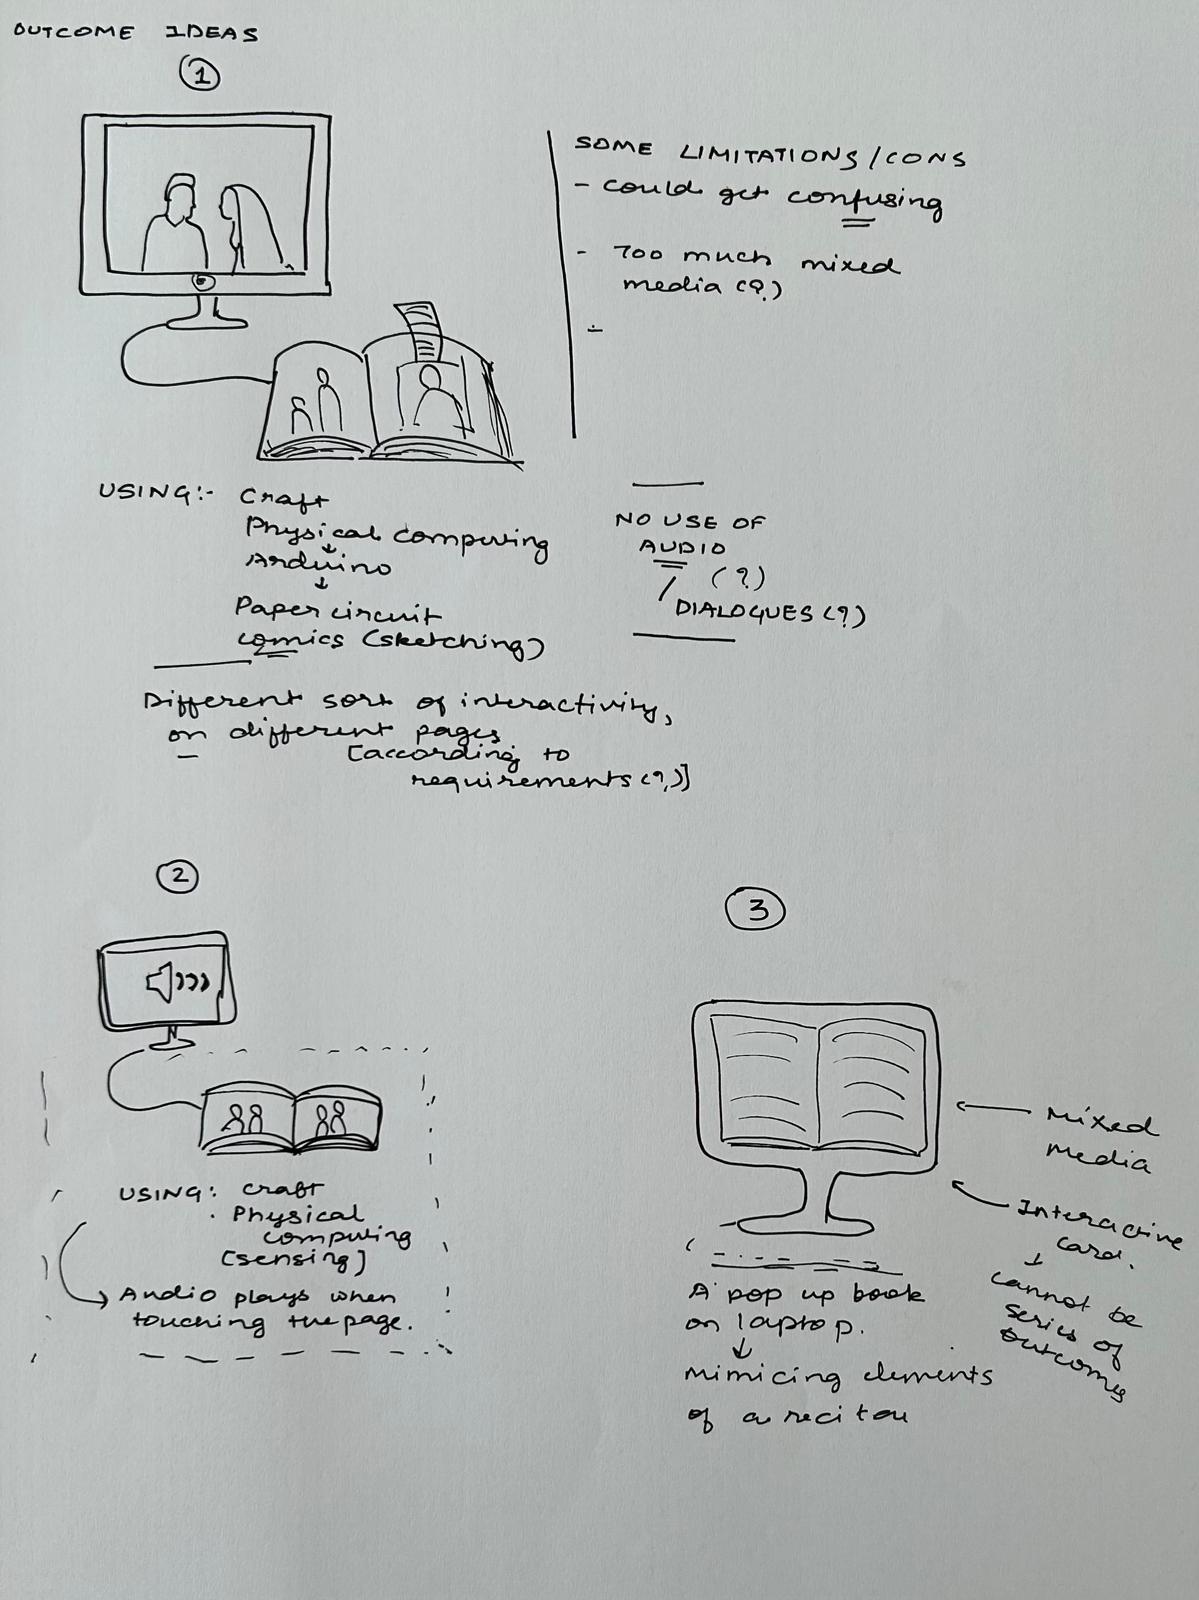 OUTCOME IDEAS
1
SOME LIMITATIONS/CONS
- could get confusing
- Too much mixed
media (?)
-
USING:- Craft
Physical computing
↓
Arduino
↓
Paper circuit
comics (sketching)
NO USE OF
AUDIO
(?)
/ DIALOGUES (?)
Different sort of interactivity,
on different pages
[according to
requirements (?)]
2
USING: craft
Physical
computing
[sensing]
→ Audio plays when
touching the page.
3
← Mixed
media
← Interactive
card.
↓
cannot be
series of
outcomes
A pop up book
on laptop.
↓
Mimicing elements
of a recital